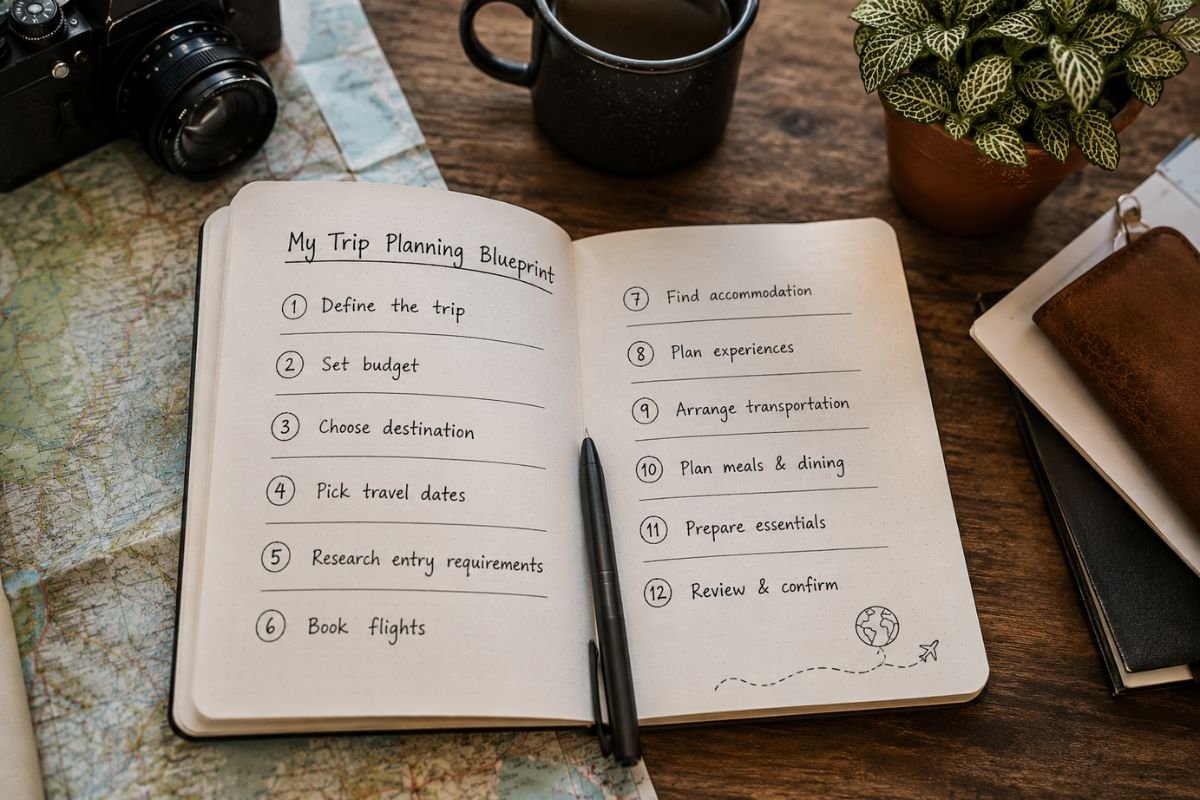 My Trip Planning Blueprint
1 Define the trip
2 Set budget
3 Choose destination
4 Pick travel dates
5 Research entry requirements
6 Book flights
7 Find accommodation
8 Plan experiences
9 Arrange transportation
10 Plan meals & dining
11 Prepare essentials
12 Review & confirm